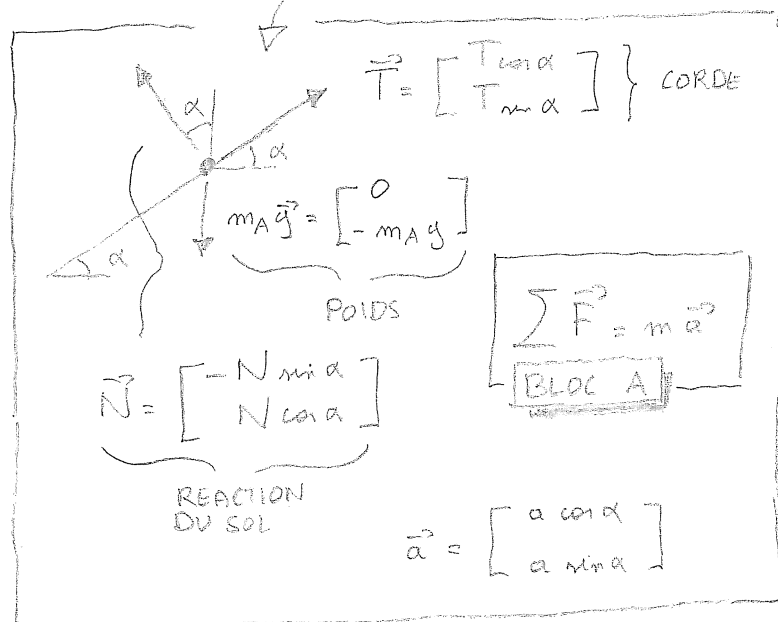 T⃗ = [ T cos α
T sin α ] } CORDE
α
α
m_A g⃗ = [ 0
- m_A g ]
α
POIDS
∑ F⃗ = m a⃗
BLOC A
N⃗ = [ - N sin α
N cos α ]
REACTION
DU SOL
a⃗ = [ a cos α
a sin α ]